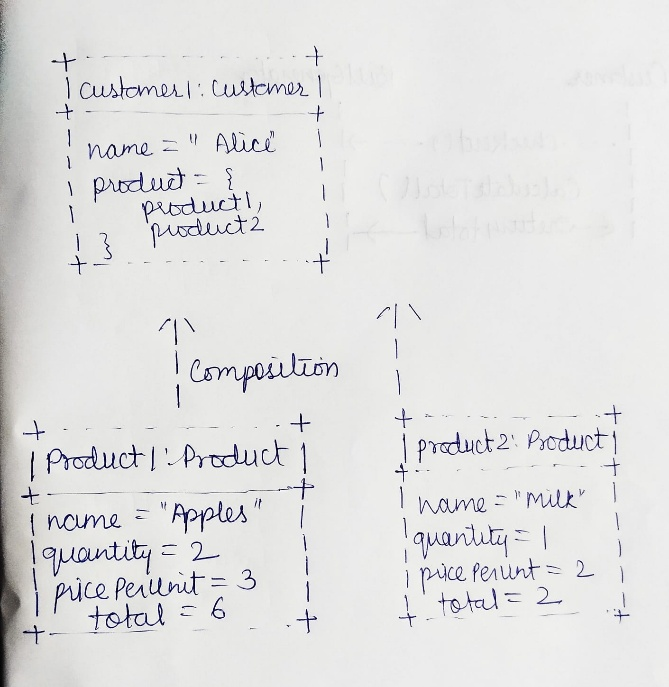 Customer1: Customer
name = "Alice"
product = {
product1,
product2
}
Composition
Product1: Product
name = "Apples"
quantity = 2
price Per Unit = 3
total = 6
product2: Product
name = "Milk"
quantity = 1
price Per unt = 2
total = 2